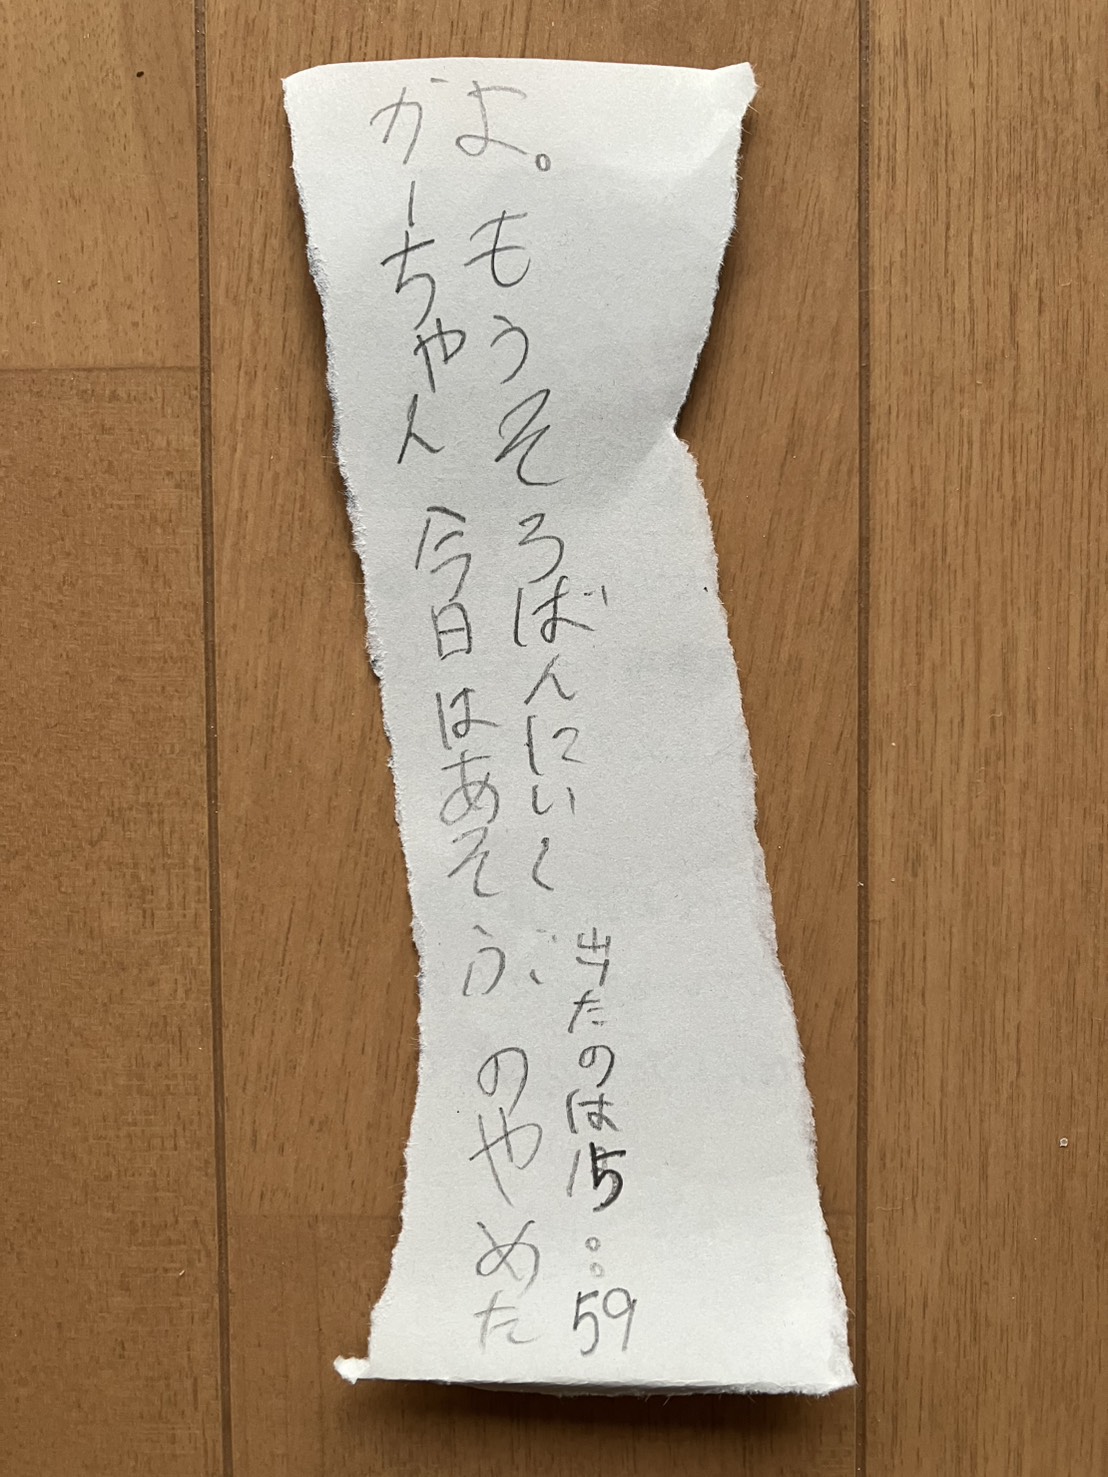 かーちゃん今日はあそぶのやめた
よ。もうそろばんにいく
出たのは15:59